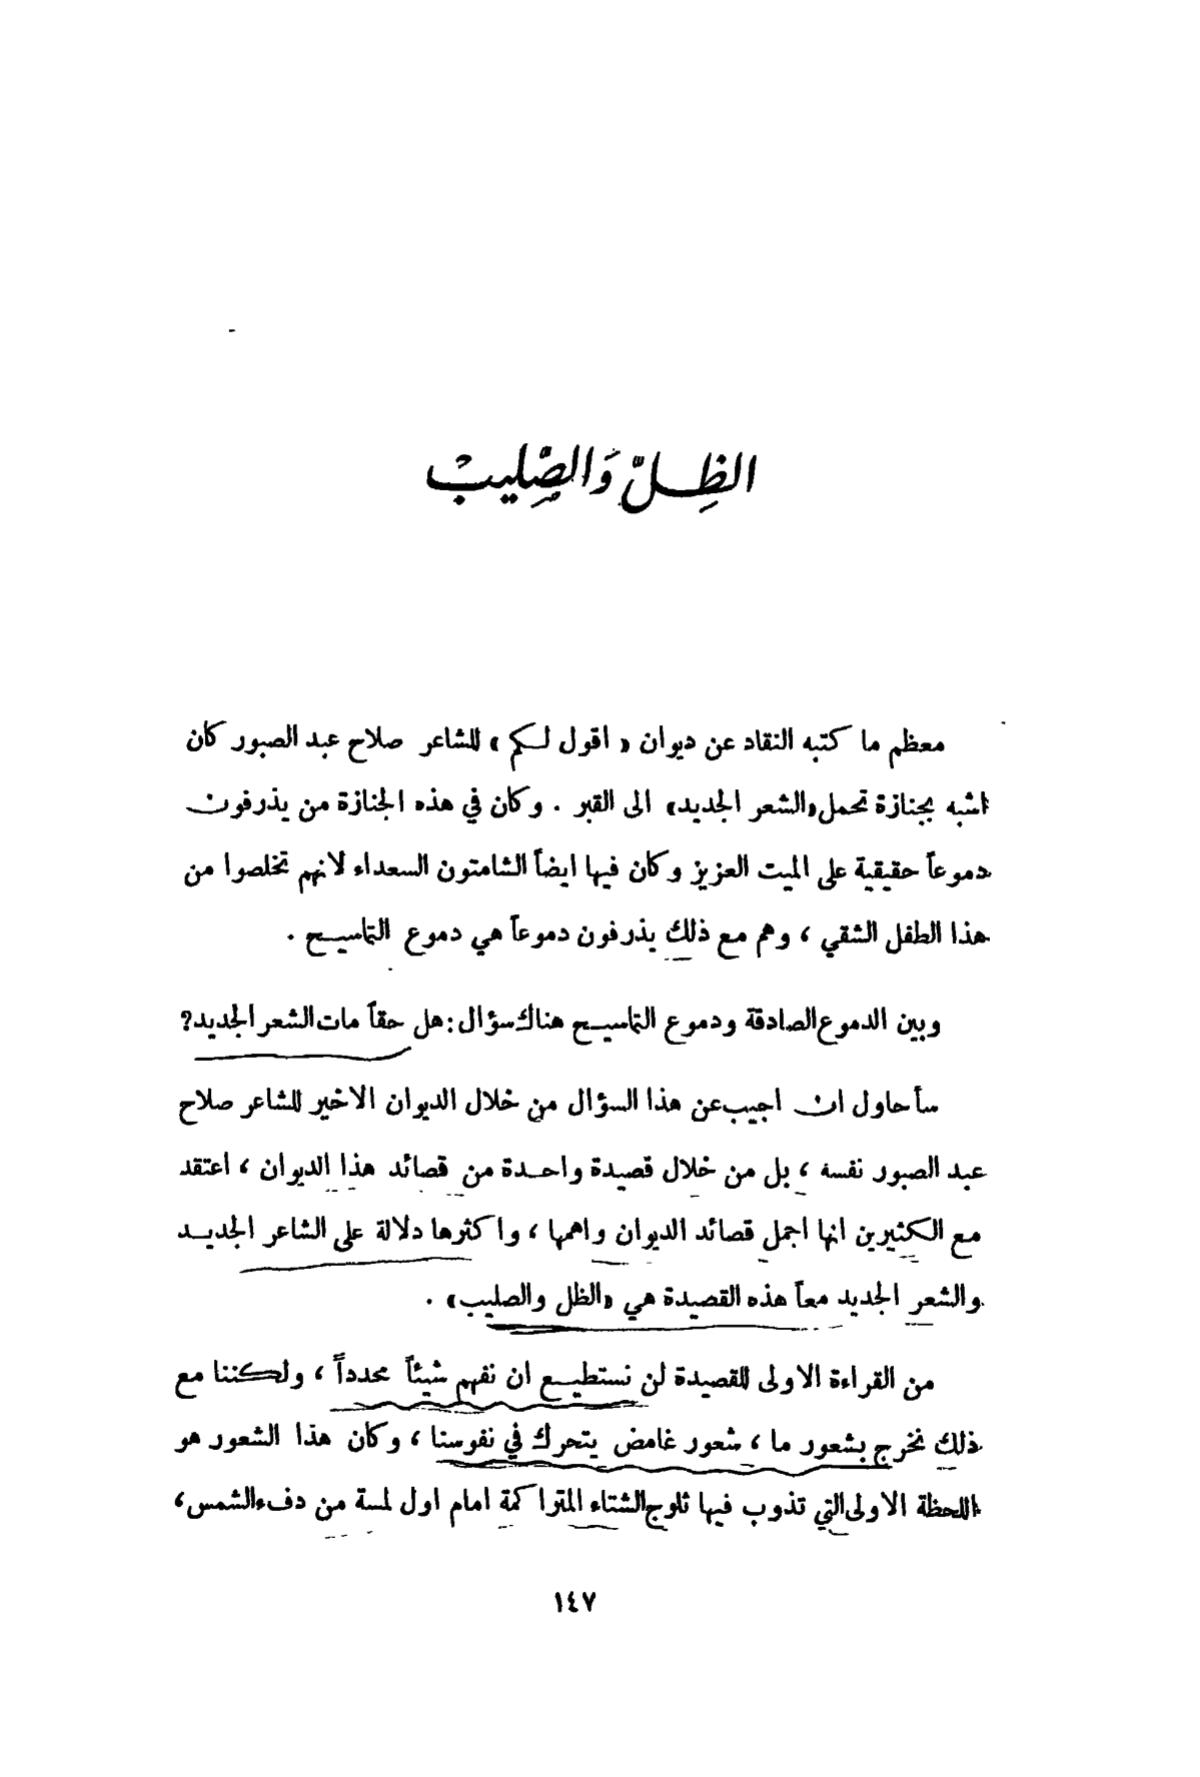 الظِّلّ وَالصَّلِيبْ
معظم ما كتبه النقاد عن ديوان « اقول لكم » للشاعر صلاح عبد الصبور كان
اشبه بجنازة تحمل «الشعر الجديد» الى القبر . وكان في هذه الجنازة من يذرفون
دموعاً حقيقية على الميت العزيز وكان فيها ايضاً الشامتون السعداء لانهم تخلصوا من
هذا الطفل الشقي ، وهم مع ذلك يذرفون دموعاً هي دموع التماسيح .
وبين الدموع الصادقة ودموع التماسيح هناك سؤال : هل حقاً مات الشعر الجديد؟
سأحاول ان اجيب عن هذا السؤال من خلال الديوان الاخير للشاعر صلاح
عبد الصبور نفسه ، بل من خلال قصيدة واحدة من قصائد هذا الديوان ، اعتقد
مع الكثيرين انها اجمل قصائد الديوان واهمها ، واكثرها دلالة على الشاعر الجديد
والشعر الجديد معاً هذه القصيدة هي «الظل والصليب» .
من القراءة الاولى للقصيدة لن نستطيع ان نفهم شيئاً محدداً ، ولكننا مع
ذلك نخرج بشعور ما ، شعور غامض يتحرك في نفوسنا ، وكان هذا الشعور هو
اللحظة الاولى التي تذوب فيها ثلوج الشتاء المتراكمة امام اول لمسة من دفء الشمس ،
١٤٧